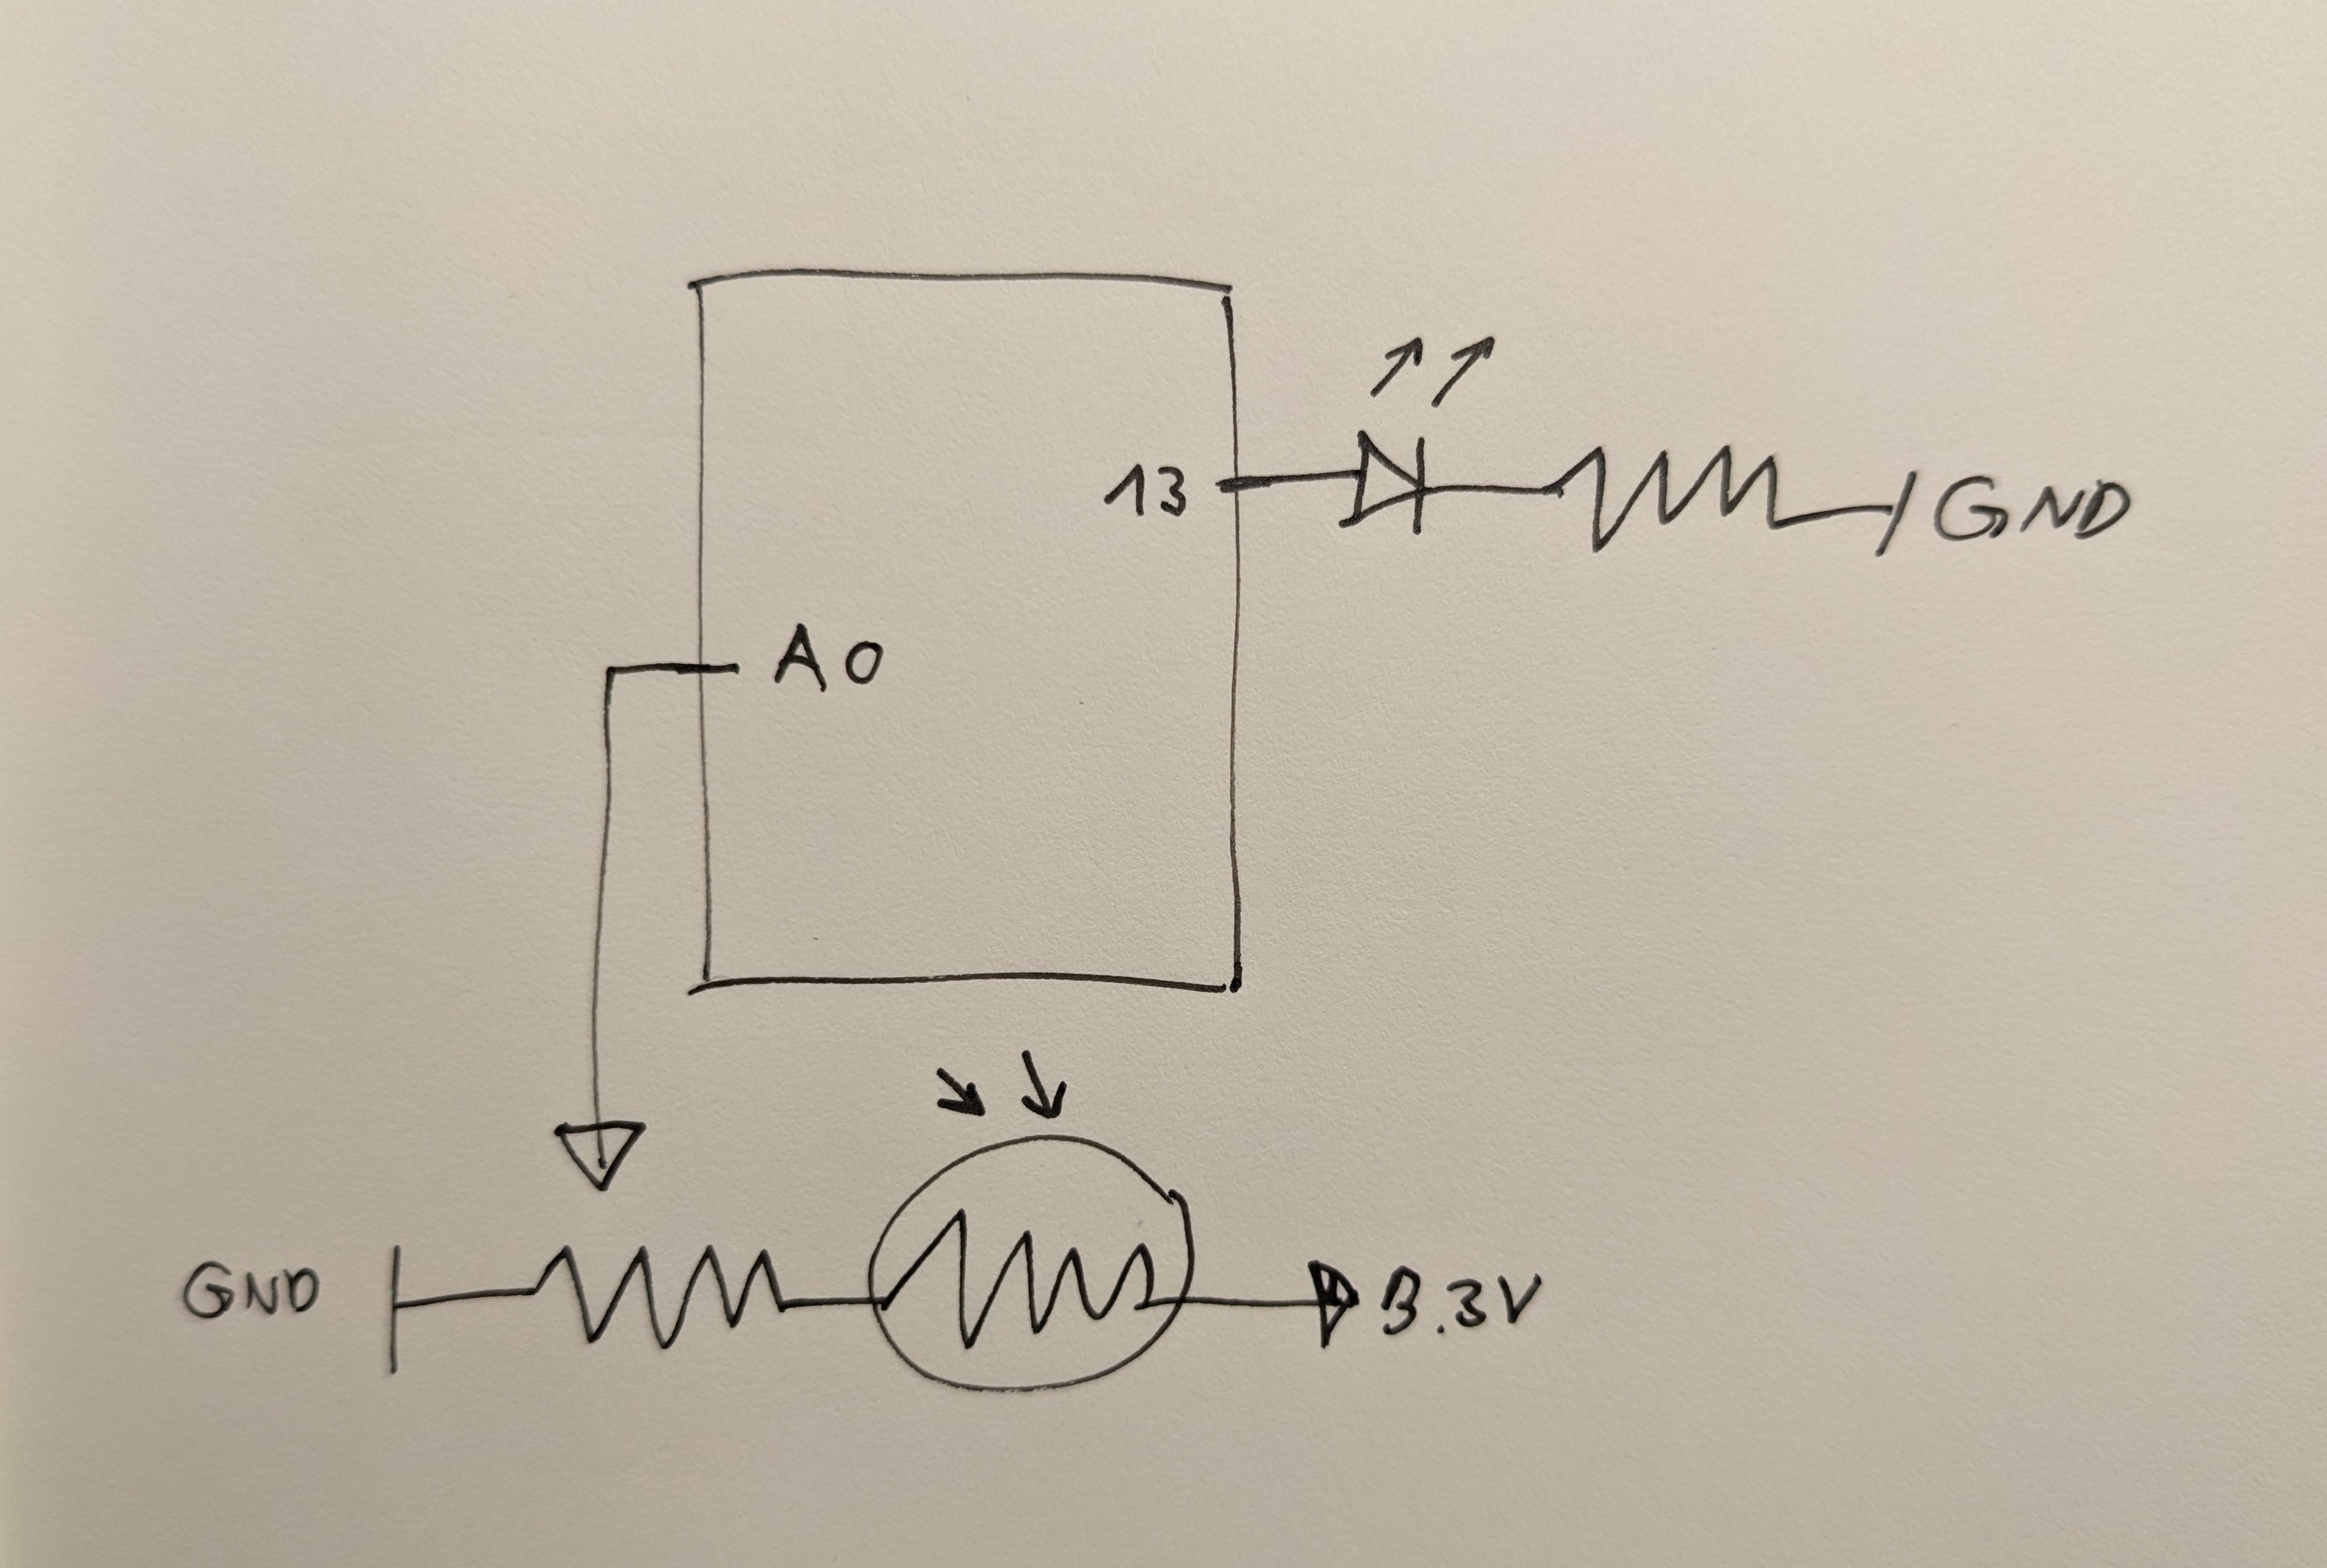 13
GND
A0
GND
3.3V